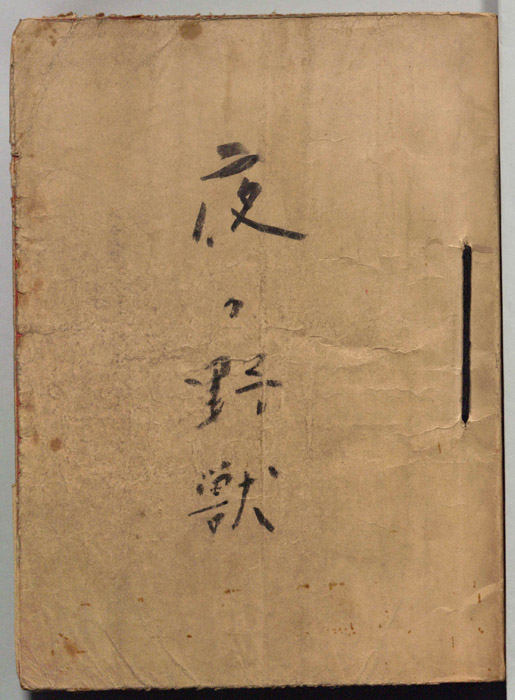 夜の野獣